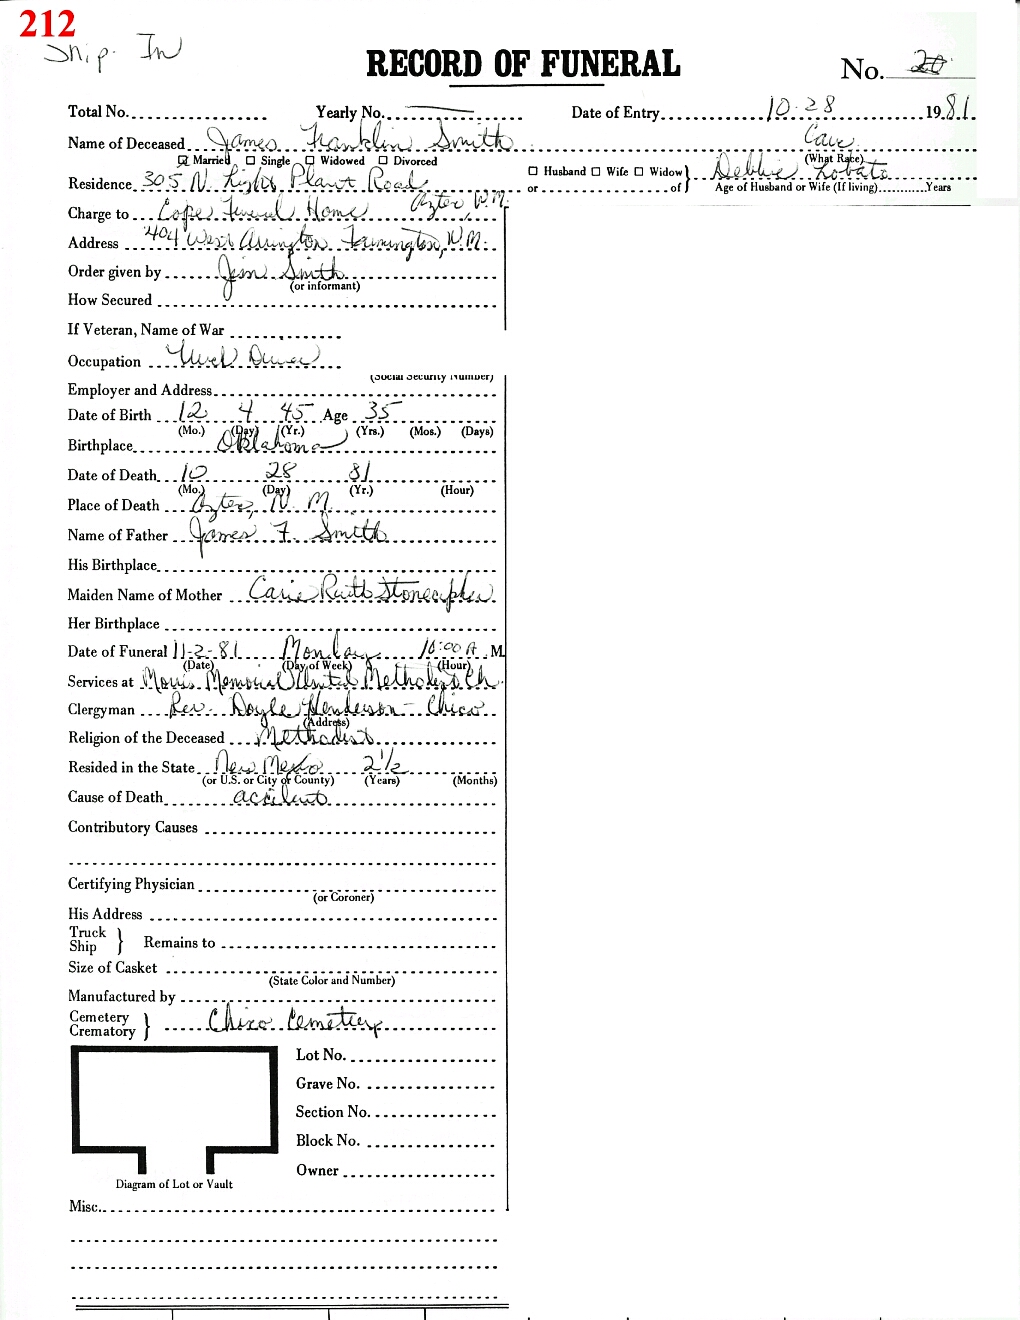 212
Ship In
RECORD OF FUNERAL
No. 20
Total No. Yearly No. Date of Entry 10-28 1981
Name of Deceased James Franklin Smith Cauc
Married Single Widowed Divorced (What Race)
Residence 305 N. Light Plant Road Aztec, N.M. Husband Wife Widow or of Debbie Lobato Age of Husband or Wife (If living) Years
Charge to Cope Funeral Home
Address 404 West Arrington Farmington, N.M.
Order given by Jim Smith
(or informant)
How Secured
If Veteran, Name of War
Occupation
(Social Security Number)
Employer and Address
Date of Birth 12 4 45 Age 35
(Mo.) (Day) (Yr.) (Yrs.) (Mos.) (Days)
Birthplace Oklahoma
Date of Death 10 28 81
(Mo.) (Day) (Yr.) (Hour)
Place of Death Aztec, N. M.
Name of Father James F. Smith
His Birthplace
Maiden Name of Mother Carie Ruth Stonecipher
Her Birthplace
Date of Funeral 11-2-81 Monday 10:00 A.M
(Date) (Day of Week) (Hour)
Services at Morris Memorial United Methodist Ch.
Clergyman Rev. Doyle Henderson - Chico
(Address)
Religion of the Deceased Methodist
Resided in the State New Mexico 2 1/2
(or U.S. or City or County) (Years) (Months)
Cause of Death accident
Contributory Causes
Certifying Physician
(or Coroner)
His Address
Truck Ship } Remains to
Size of Casket
(State Color and Number)
Manufactured by
Cemetery Crematory } Chico Cemetery
Lot No.
Grave No.
Section No.
Block No.
Owner
Diagram of Lot or Vault
Misc.